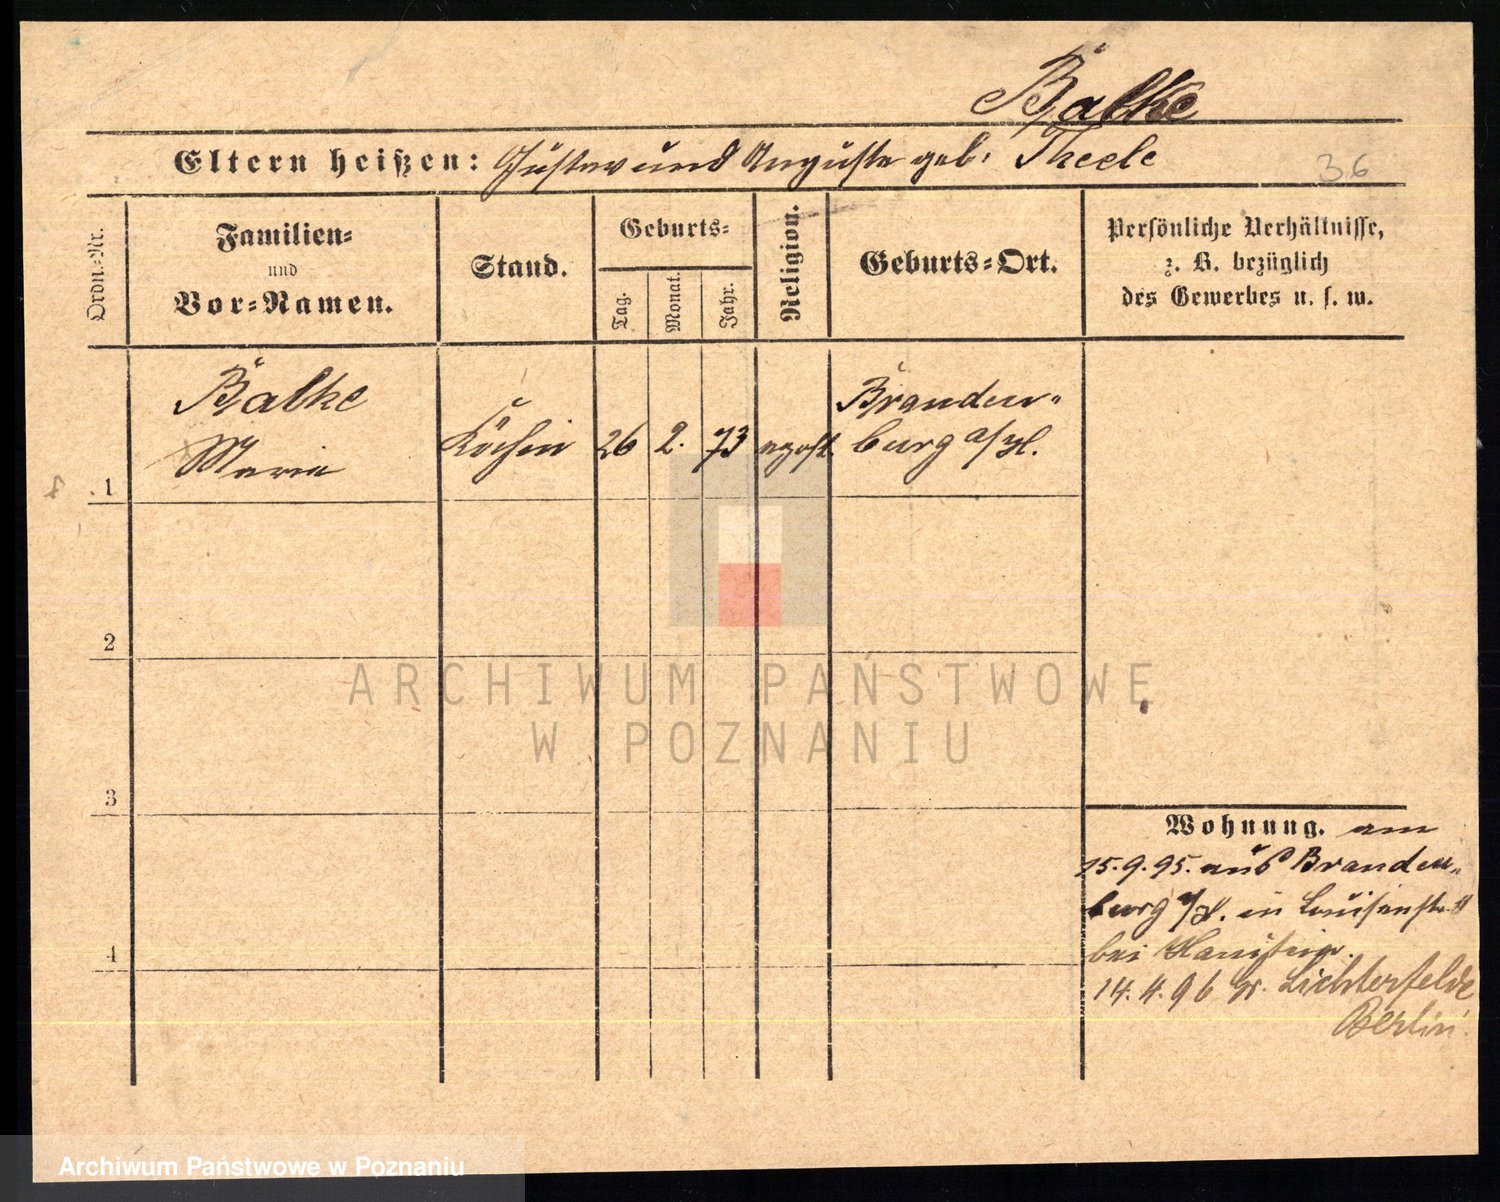 Balke
Eltern heißen: Gustav und Auguste geb. Theele
36
Ordn.-Nr.
Familien-
und
Vor-Namen.
Stand.
Geburts-
Tag.
Monat.
Jahr.
Religion.
Geburts-Ort.
Persönliche Verhältnisse,
z. B. bezüglich
des Gewerbes u. s. w.
Balke
Marie
Köchin
26
2.
73
apost.
Branden-
burg a/H.
1
2
3
4
Wohnung. am
15.9.95. aus Branden-
burg a/H. in Louisenstr.
bei
14.4.96 Gr. Lichterfelde
Berlin.
ARCHIWUM PAŃSTWOWE
W POZNANIU
Archiwum Państwowe w Poznaniu